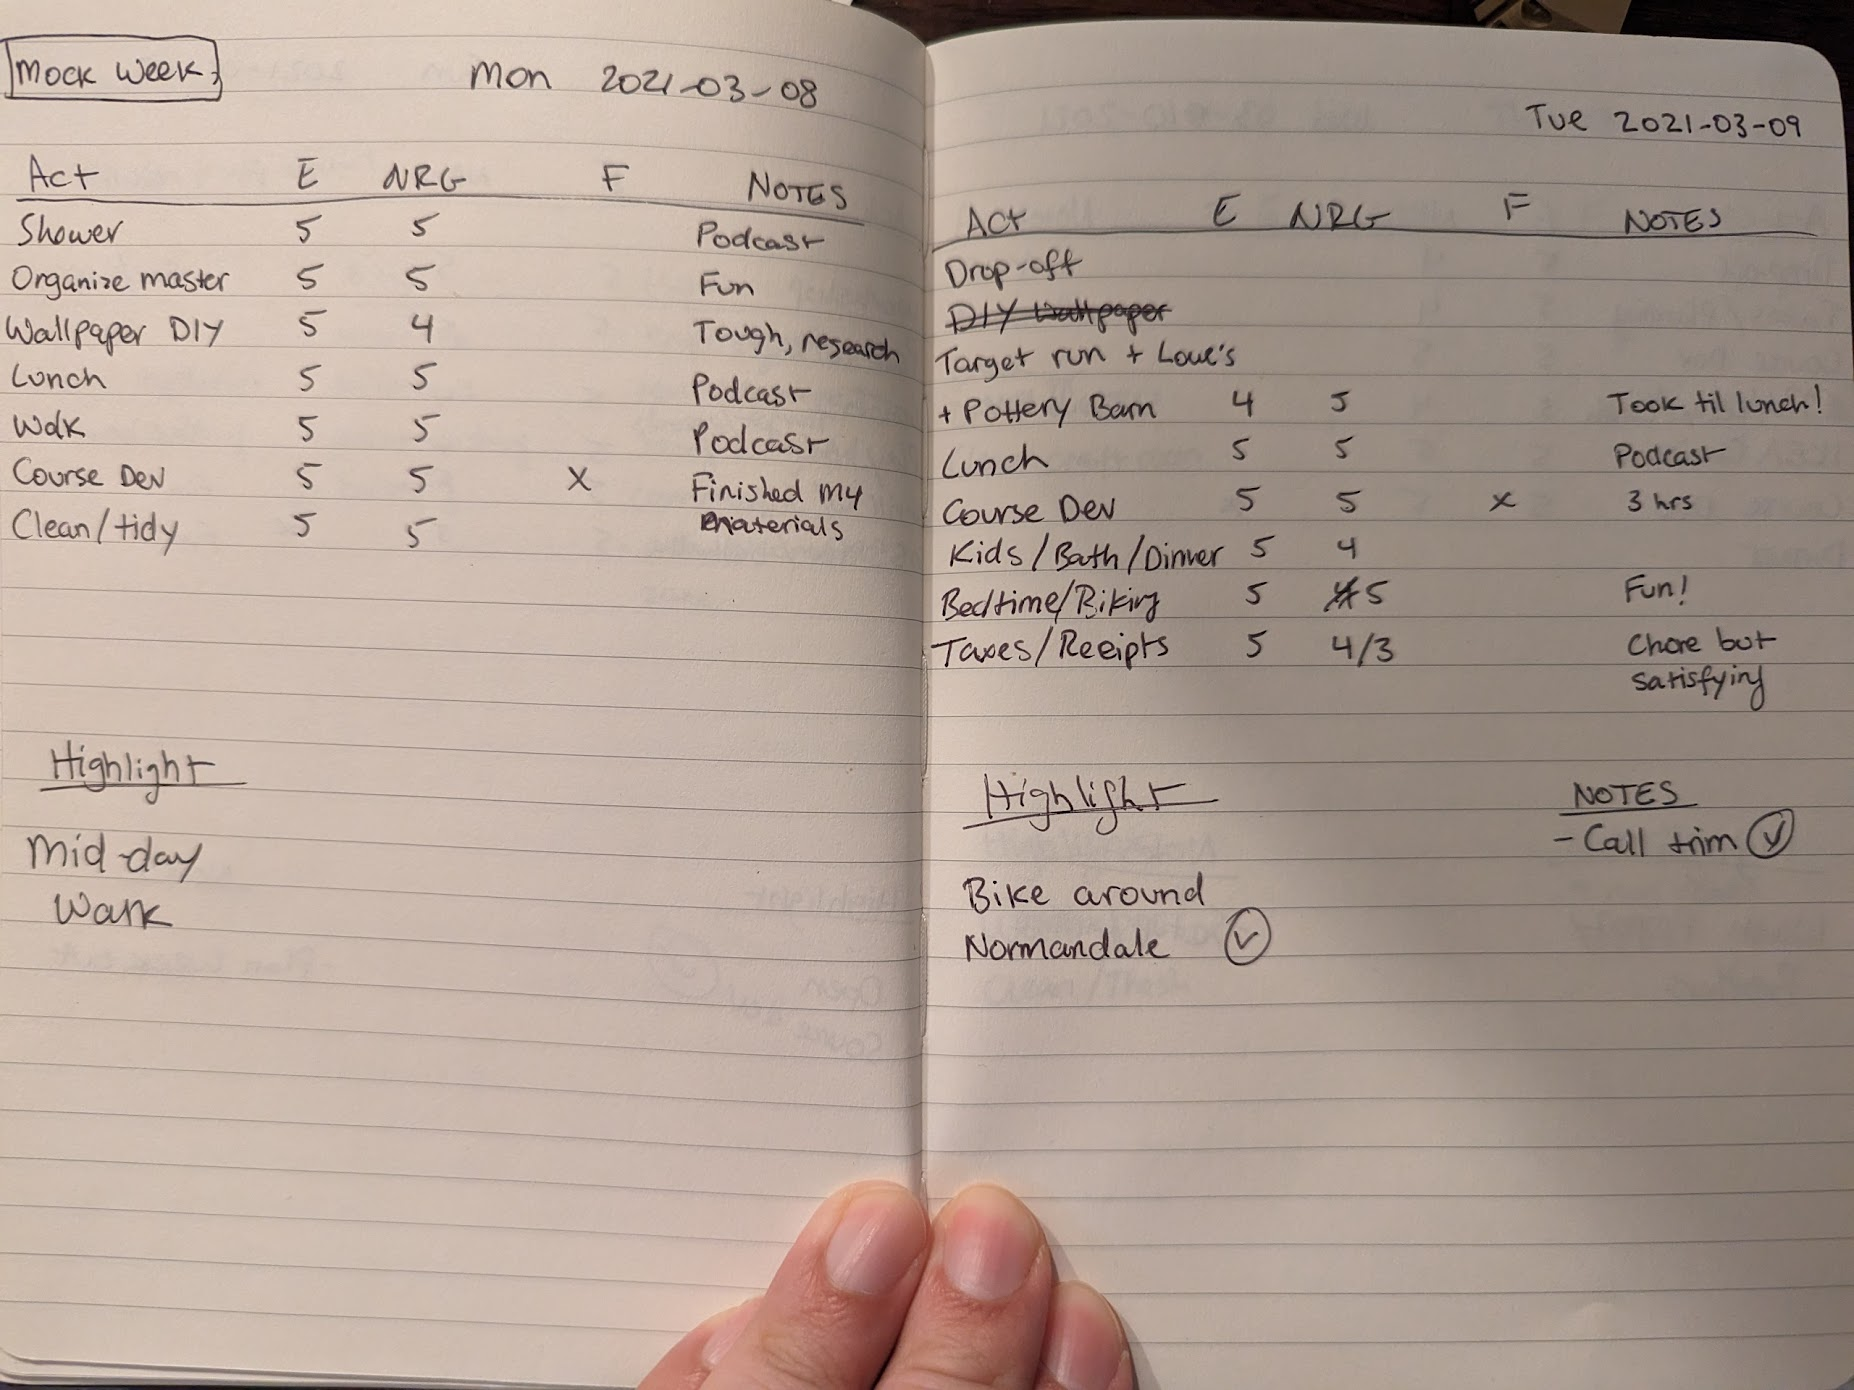 Mock Week,
Mon 2021-03-08
Act E NRG F NOTES
Shower 5 5 Podcast
Organize master 5 5 Fun
Wallpaper DIY 5 4 Tough, research
Lunch 5 5 Podcast
Walk 5 5 Podcast
Course Dev 5 5 X Finished my
materials
Clean/tidy 5 5
Highlight
Mid-day
Walk
Tue 2021-03-09
Act E NRG F NOTES
Drop-off
DIY Wallpaper
Target run + Lowe's
+ Pottery Barn 4 5 Took til lunch!
Lunch 5 5 Podcast
Course Dev 5 5 x 3 hrs
Kids/Bath/Dinner 5 4
Bedtime/Biking 5 5 Fun!
Taxes/Receipts 5 4/3 Chore but
satisfying
Highlight
Bike around
Normandale
NOTES
- Call trim